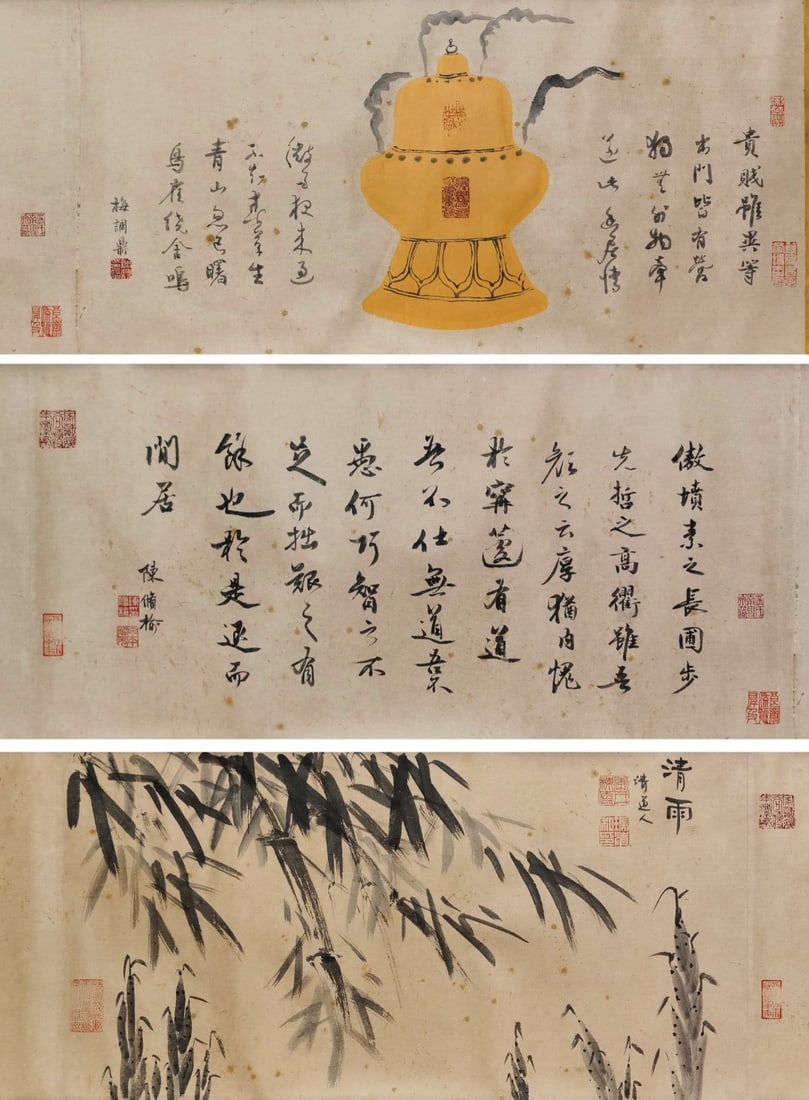 貴賤雖異等
出門皆有營
獨無外物牽
遂此幽居情
微雨夜來過
不知春草生
青山忽已曙
鳥雀繞舍鳴
梅調鼎
傲墳素之長圃步
先哲之高衢雖吾
顏之云厚猶內愧
於寗蘧有道
吾不仕無道吾不
愚何巧智之不
足而拙艱之有
餘也於是退而
閒居
陳脩榆
清雨
清道人